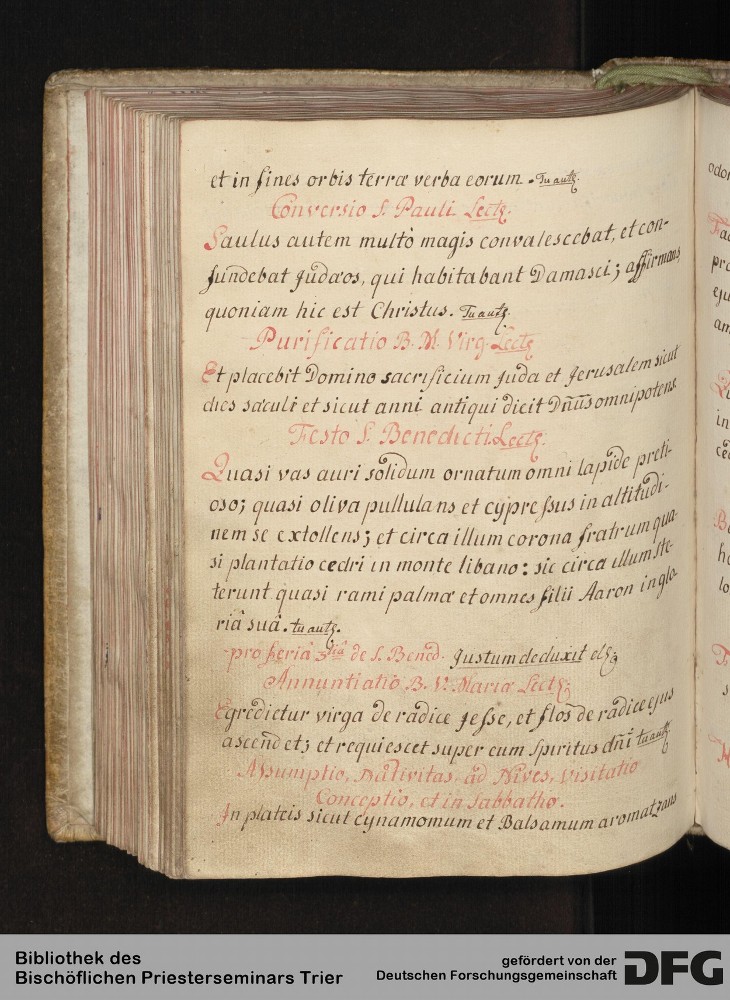 et in fines orbis terræ verba eorum. Tu autꝫ.
Conversio S. Pauli Lectꝫ.
Saulus autem multò magis convalescebat, et con-
fundebat Judæos, qui habitabant Damasci; affirmans,
quoniam hic est Christus. Tu autꝫ.
Purificatio B. M. Virg. Lectꝫ
Et placebit Domino sacrificium Juda et Jerusalem sicut
dies sæculi et sicut anni antiqui dicit Dñus omnipotens.
Festo S. Benedicti Lectꝫ.
Quasi vas auri solidum ornatum omni lapide preti-
oso; quasi oliva pullulans et cypressus in altitudi-
nem se extollens; et circa illum corona fratrum qua-
si plantatio cedri in monte libano: sic circa illum ste-
terunt quasi rami palmæ et omnes filii Aaron in glo-
riâ suâ. tu autꝫ.
pro feriâ 3tiâ de S. Bened. Justum deduxit
Annuntiatio B. V. Mariæ Lectꝫ
Egredietur virga de radice Jesse, et flos de radice ejus
ascendet; et requiescet super eum Spiritus dñi tu autꝫ.
Assumptio, Nativitas, ad Nives, Visitatio
Conceptio, et in Sabbatho.
In plateis sicut cynamomum et Balsamum aromatzans
Bibliothek des
Bischöflichen Priesterseminars Trier
gefördert von der
Deutschen Forschungsgemeinschaft
DFG